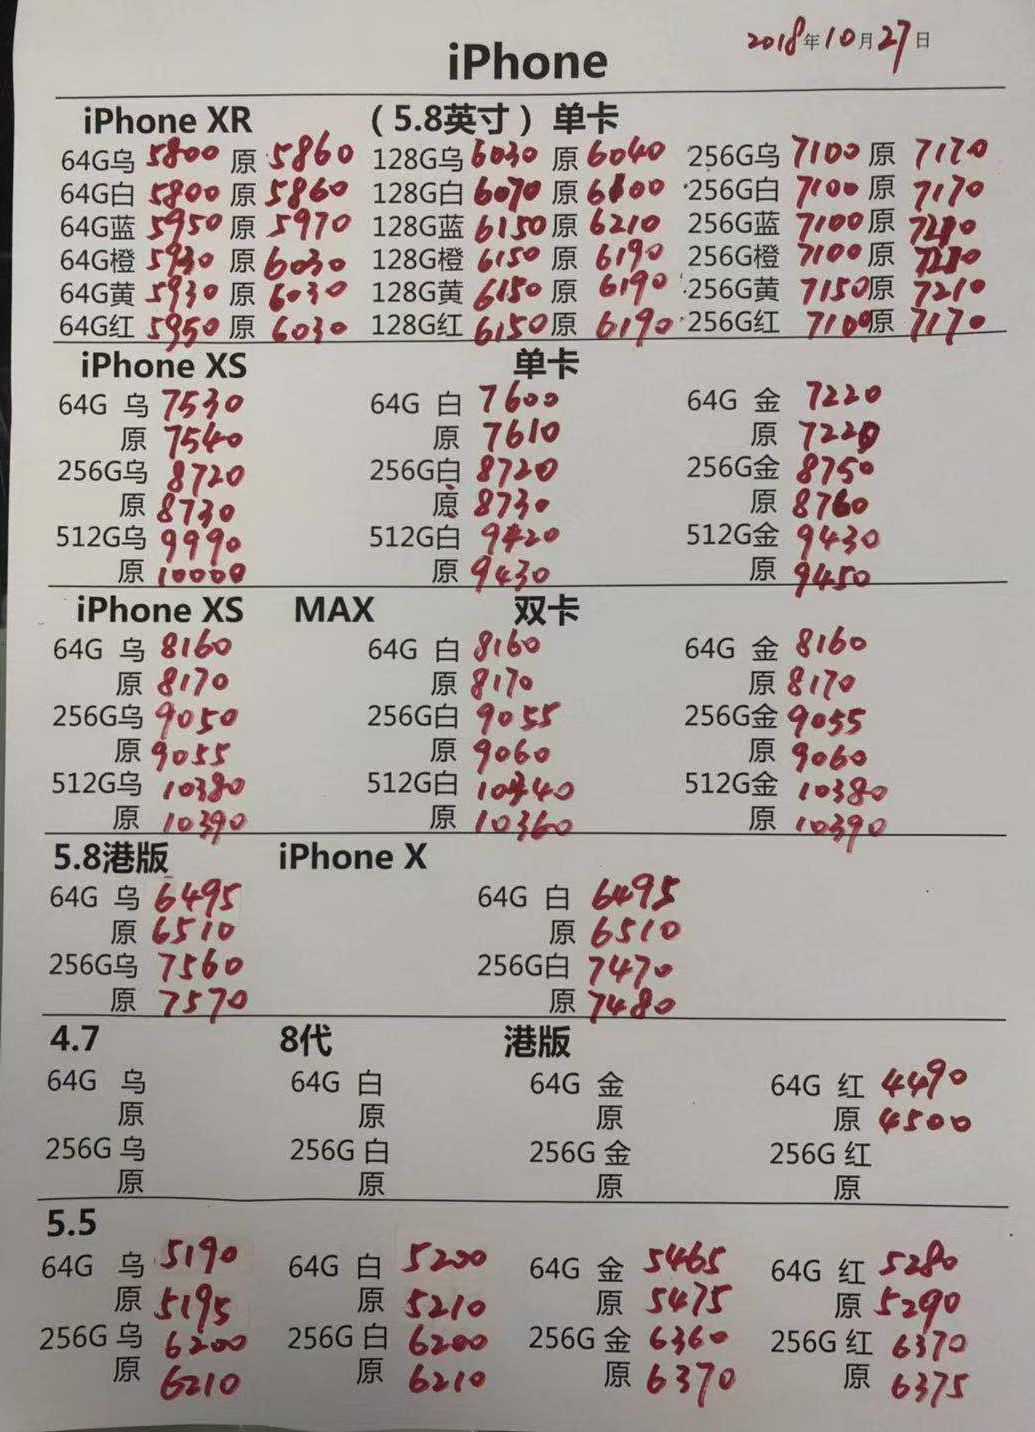 2018年10月27日
iPhone
iPhone XR （5.8英寸）单卡
64G乌 5800 原 5860 128G乌 6030 原 6040 256G乌 7100 原 7170
64G白 5800 原 5860 128G白 6070 原 6100 256G白 7100 原 7170
64G蓝 5950 原 5970 128G蓝 6150 原 6210 256G蓝 7100 原
64G橙 5930 原 6030 128G橙 6150 原 6190 256G橙 7100 原
64G黄 5930 原 6030 128G黄 6150 原 6190 256G黄 7150 原 7210
64G红 5950 原 6030 128G红 6150 原 6190 256G红 7100 原 7170
iPhone XS 单卡
64G 乌 7530 64G 白 7600 64G 金 7220
原 7540 原 7610 原 7220
256G乌 8720 256G白 8720 256G金 8750
原 8730 原 8730 原 8760
512G乌 9990 512G白 9420 512G金 9430
原 10000 原 9430 原 9450
iPhone XS MAX 双卡
64G 乌 8160 64G 白 8160 64G 金 8160
原 8170 原 8170 原 8170
256G乌 9050 256G白 9055 256G金 9055
原 9055 原 9060 原 9060
512G乌 10380 512G白 10340 512G金 10380
原 10390 原 10360 原 10390
5.8港版 iPhone X
64G 乌 6495 64G 白 6495
原 6510 原 6510
256G乌 7560 256G白 7470
原 7570 原 7480
4.7 8代 港版
64G 乌 64G 白 64G 金 64G 红 4490
原 原 原 原 4500
256G乌 256G白 256G金 256G红
原 原 原 原
5.5
64G 乌 5190 64G 白 5200 64G 金 5465 64G 红 5280
原 5195 原 5210 原 5475 原 5290
256G乌 6200 256G白 6200 256G金 6360 256G红 6370
原 6210 原 6210 原 6370 原 6375